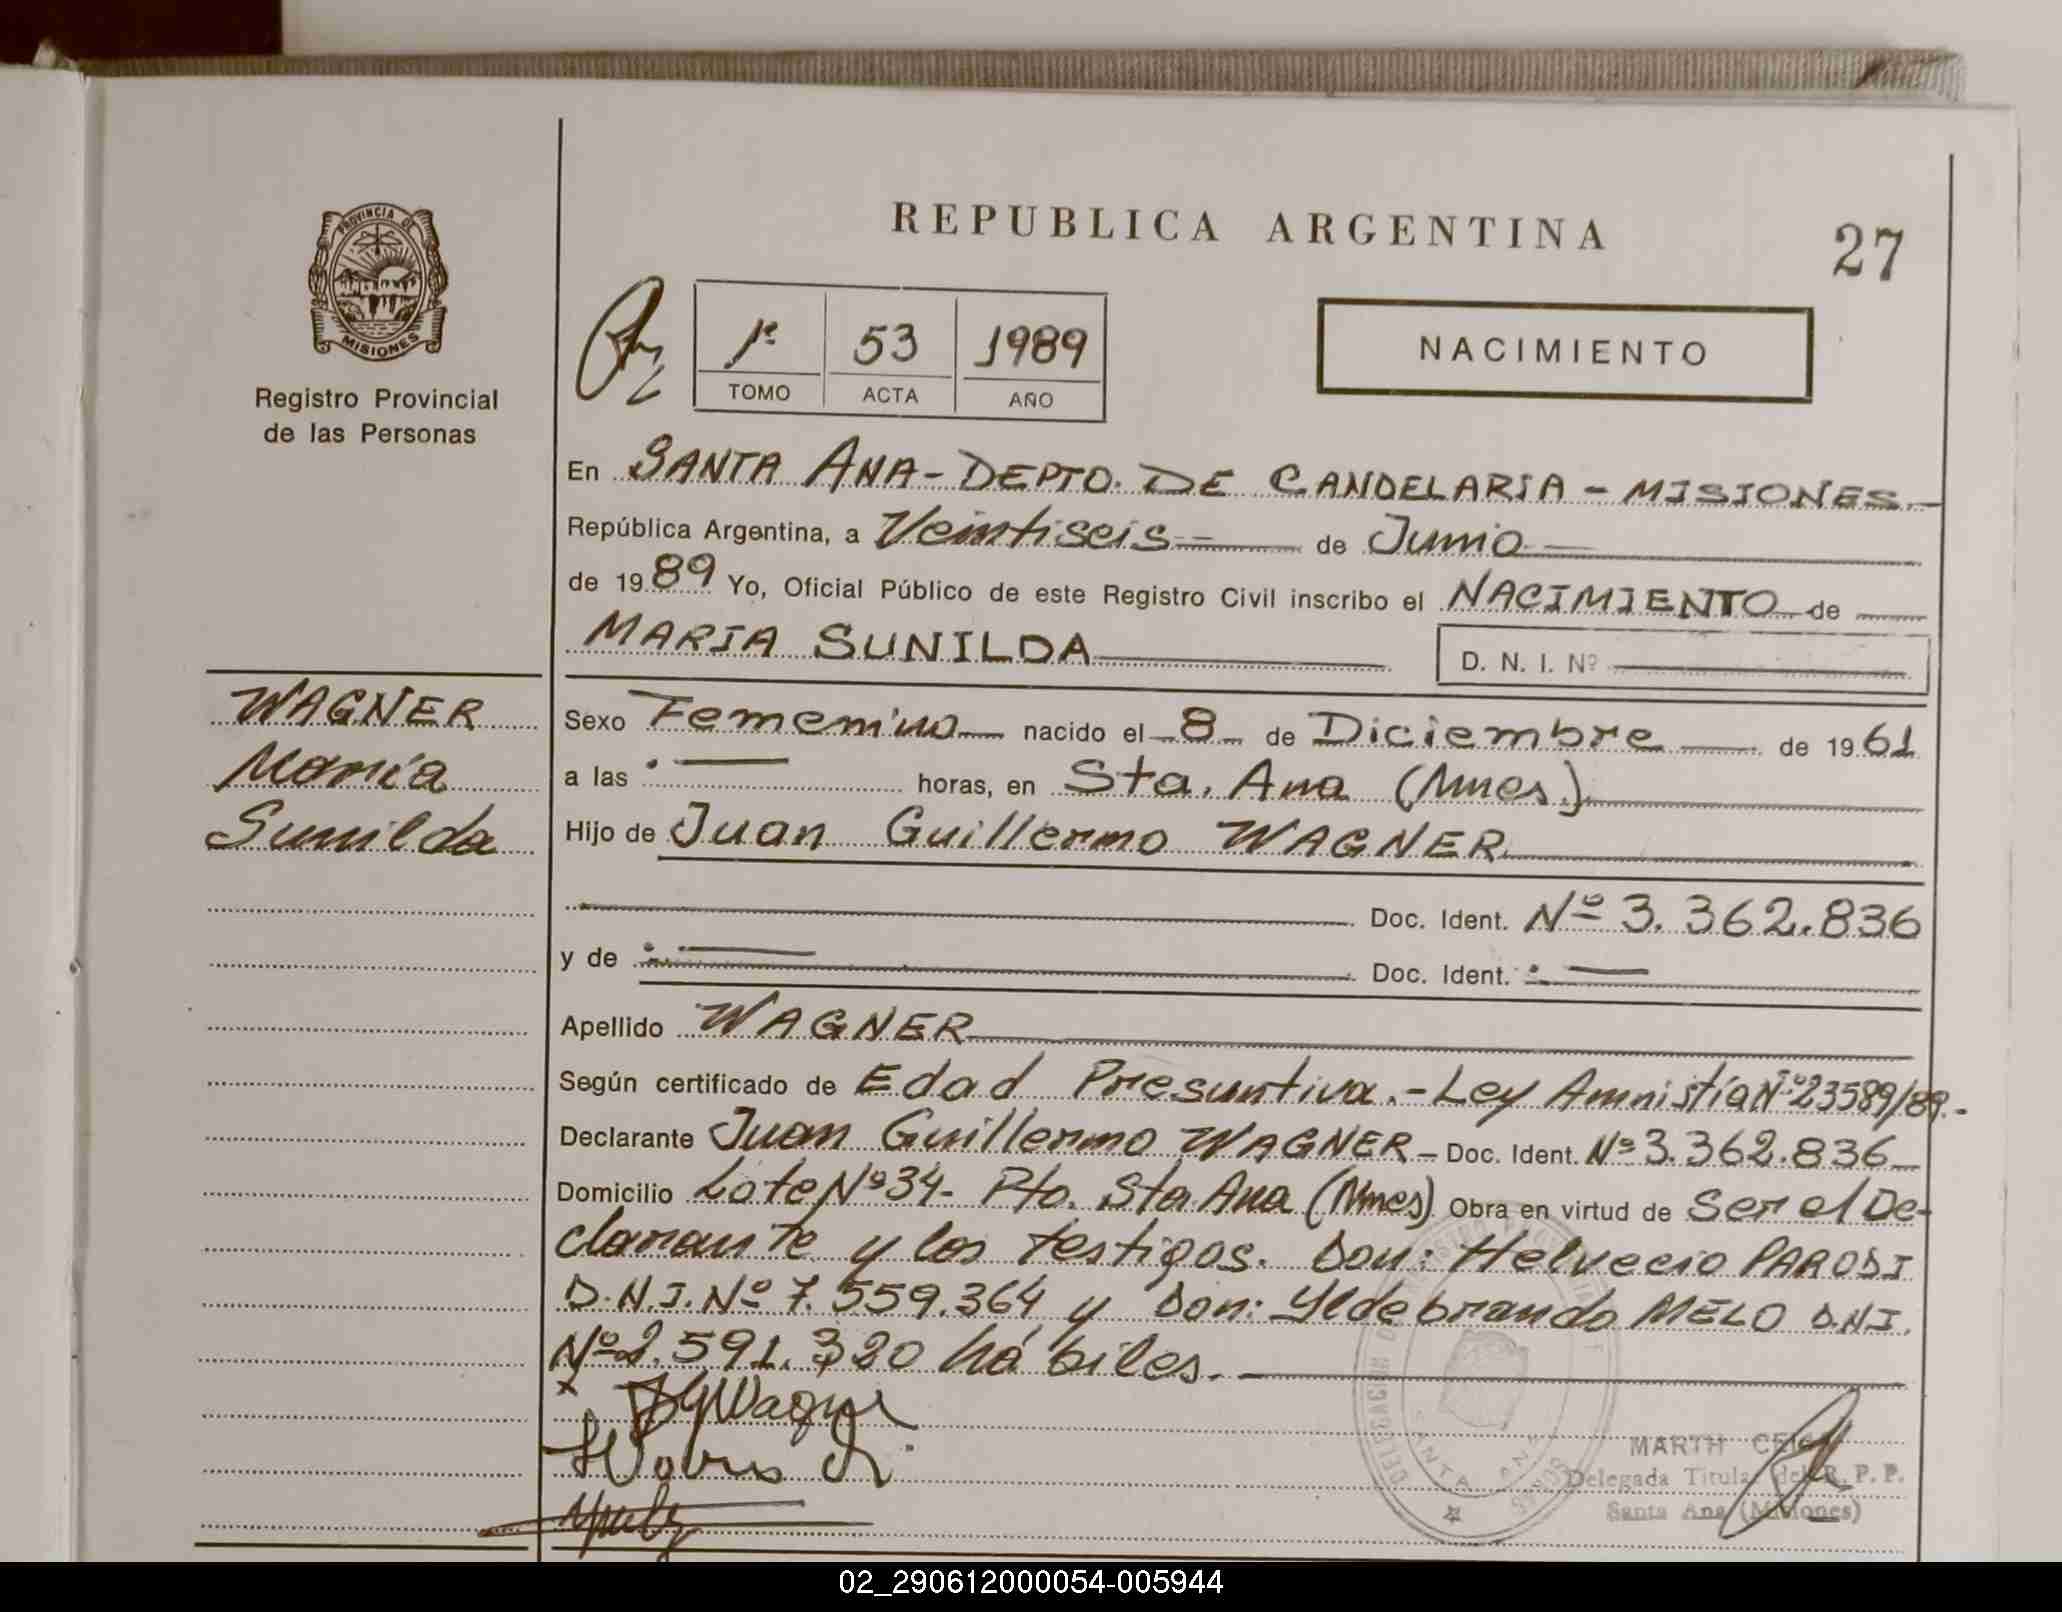 PROVINCIA DE
MISIONES
Registro Provincial
de las Personas
REPUBLICA ARGENTINA
27
1º 53 1989
TOMO ACTA AÑO
NACIMIENTO
En SANTA ANA - DEPTO. DE CANDELARIA - MISIONES.-
República Argentina, a Veintiseis de Junio
de 1989 Yo, Oficial Público de este Registro Civil inscribo el NACIMIENTO de
MARIA SUNILDA D. N. I. Nº
WAGNER
María
Sunilda
Sexo Femenino nacido el 8 de Diciembre de 1961
a las horas, en Sta. Ana (Mnes.)
Hijo de Juan Guillermo WAGNER
Doc. Ident. Nº 3.362.836
y de Doc. Ident.
Apellido WAGNER
Según certificado de Edad Presuntiva.- Ley Amnistía Nº 23589/89.-
Declarante Juan Guillermo WAGNER - Doc. Ident. Nº 3.362.836
Domicilio Lote Nº 34- Pto. Sta Ana (Mnes) Obra en virtud de Ser el De-
clarante y los testigos. Don: Helvecio PARODI
D.N.I. Nº 7.559.364 y Don: Yldebrando MELO D.N.I.
Nº 2.591.320 hábiles.-
x JGWagner
Delegada Titular del R. P. P.
Santa Ana (Misiones)
SANTA ANA
02_290612000054-005944